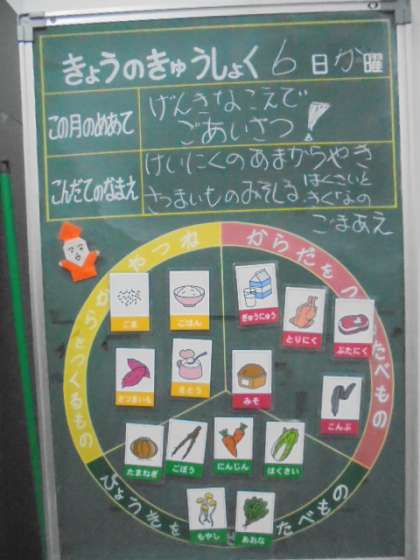 きょうのきゅうしょく 6日か曜
この月のめあて
げんきなこえで
ごあいさつ!
こんだてのなまえ
けいにくのあまからやき
さつまいものみそしる はくさいと
きくなの
ごまあえ
からだをつ
たべもの
やつね
らをつくるもの
ごま
ごはん
ぎゅうにゅう
とりにく
ぶたにく
さつまいも
さとう
みそ
こんぶ
たまねぎ
ごぼう
にんじん
はくさい
もやし
あおな
ひょうしを
たべもの